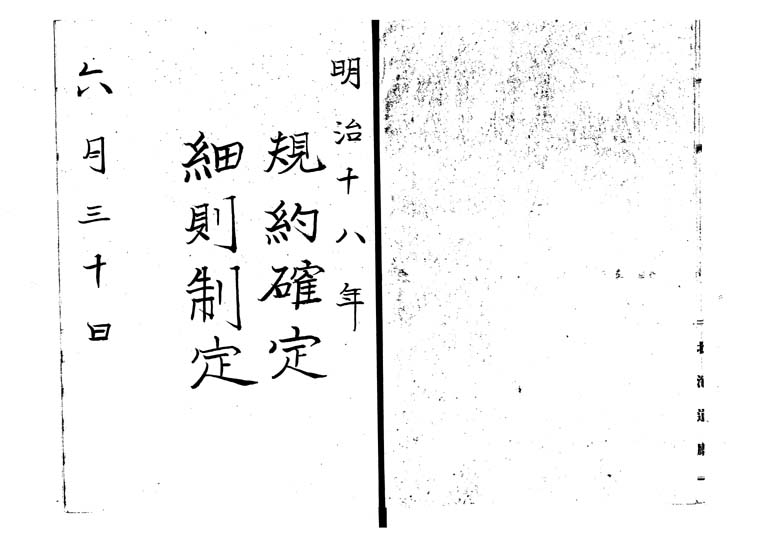 北海道庁
明治十八年
規約確定
細則制定
六月三十日